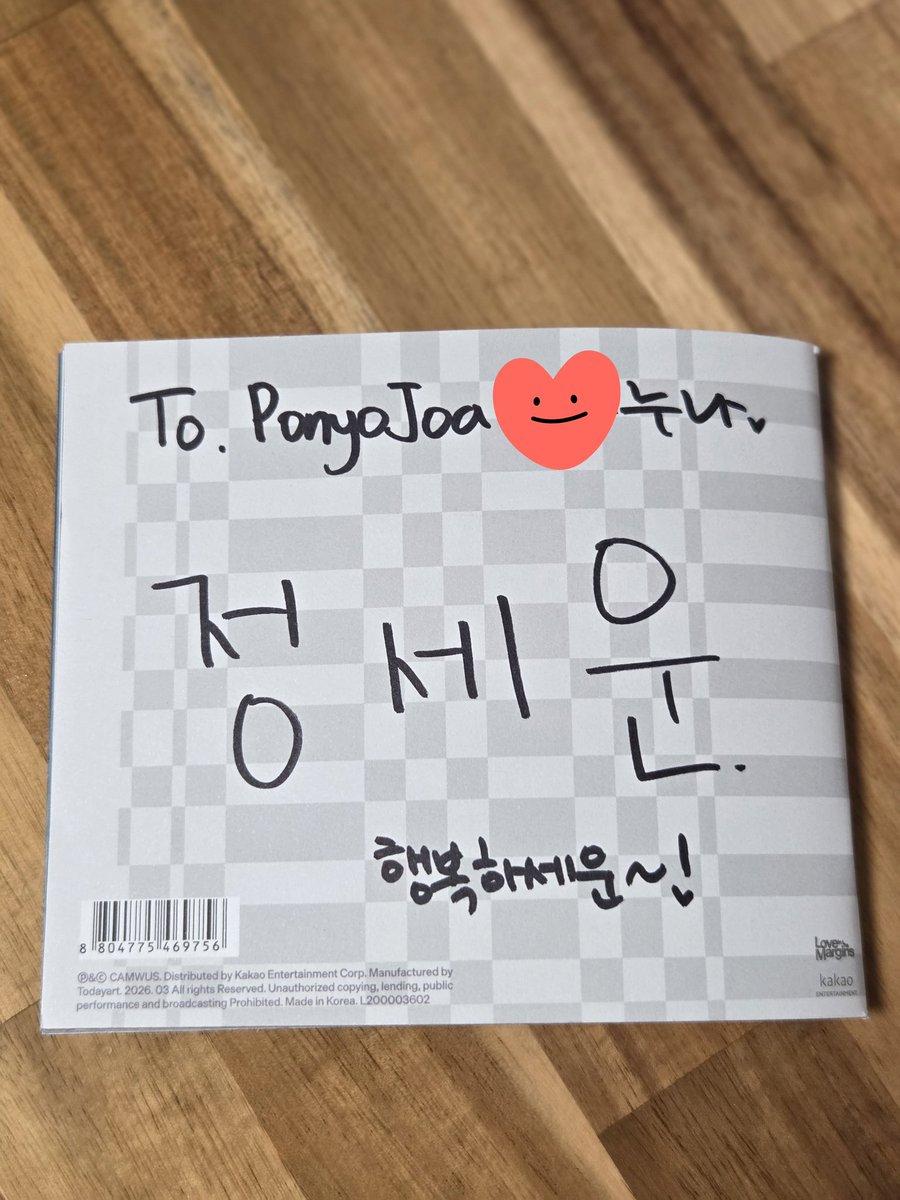 To. PonyoJoa 누나♥
정세운.
행복하세운~!
8 804775 469756
Love in the Margins
kakao
ENTERTAINMENT
℗&© CAMWUS. Distributed by Kakao Entertainment Corp. Manufactured by
Todayart. 2026. 03 All rights Reserved. Unauthorized copying, lending, public
performance and broadcasting Prohibited. Made in Korea. L200003602